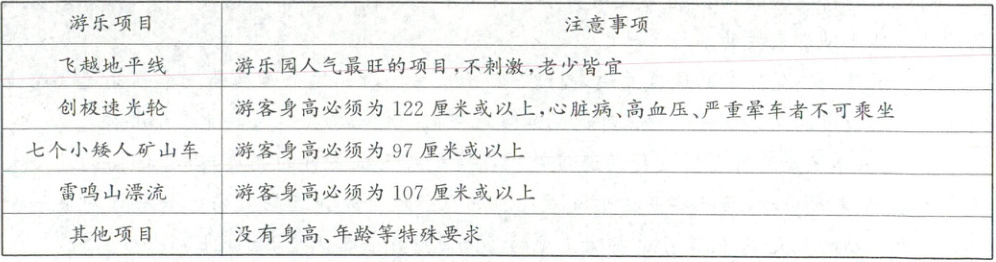 游乐项目 注意事项
飞越地平线 游乐园人气最旺的项目,不刺激,老少皆宜
创极速光轮 游客身高必须为 122 厘米或以上,心脏病、高血压、严重晕车者不可乘坐
七个小矮人矿山车 游客身高必须为 97 厘米或以上
雷鸣山漂流 游客身高必须为 107 厘米或以上
其他项目 没有身高、年龄等特殊要求